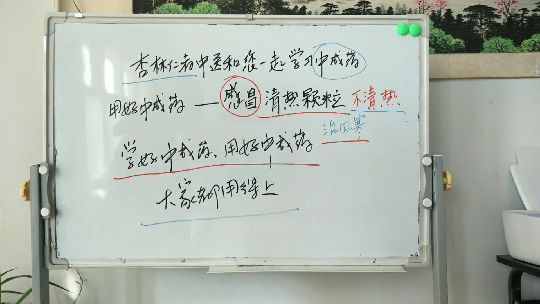 杏林仁者中医和您一起学习中成药
用好中成药——感冒清热颗粒 不清热
治风寒
学好中成药、用好中成药
大家都用得上